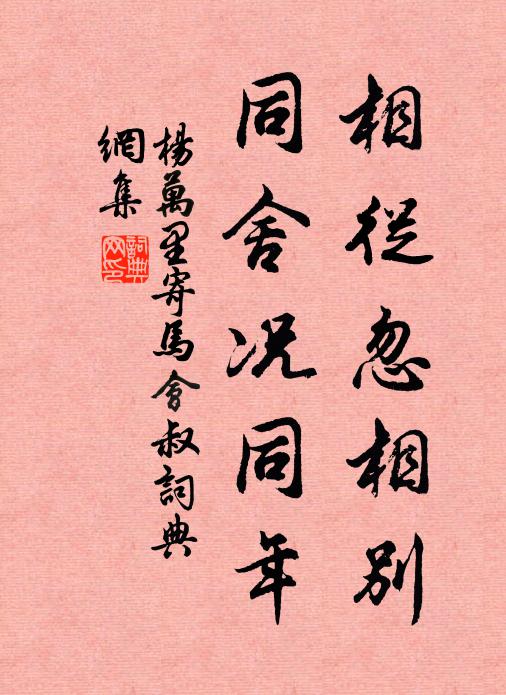 相從忽相別
同舍况同年
楊萬里寄馬會叔詞典
網集
詞典
网印